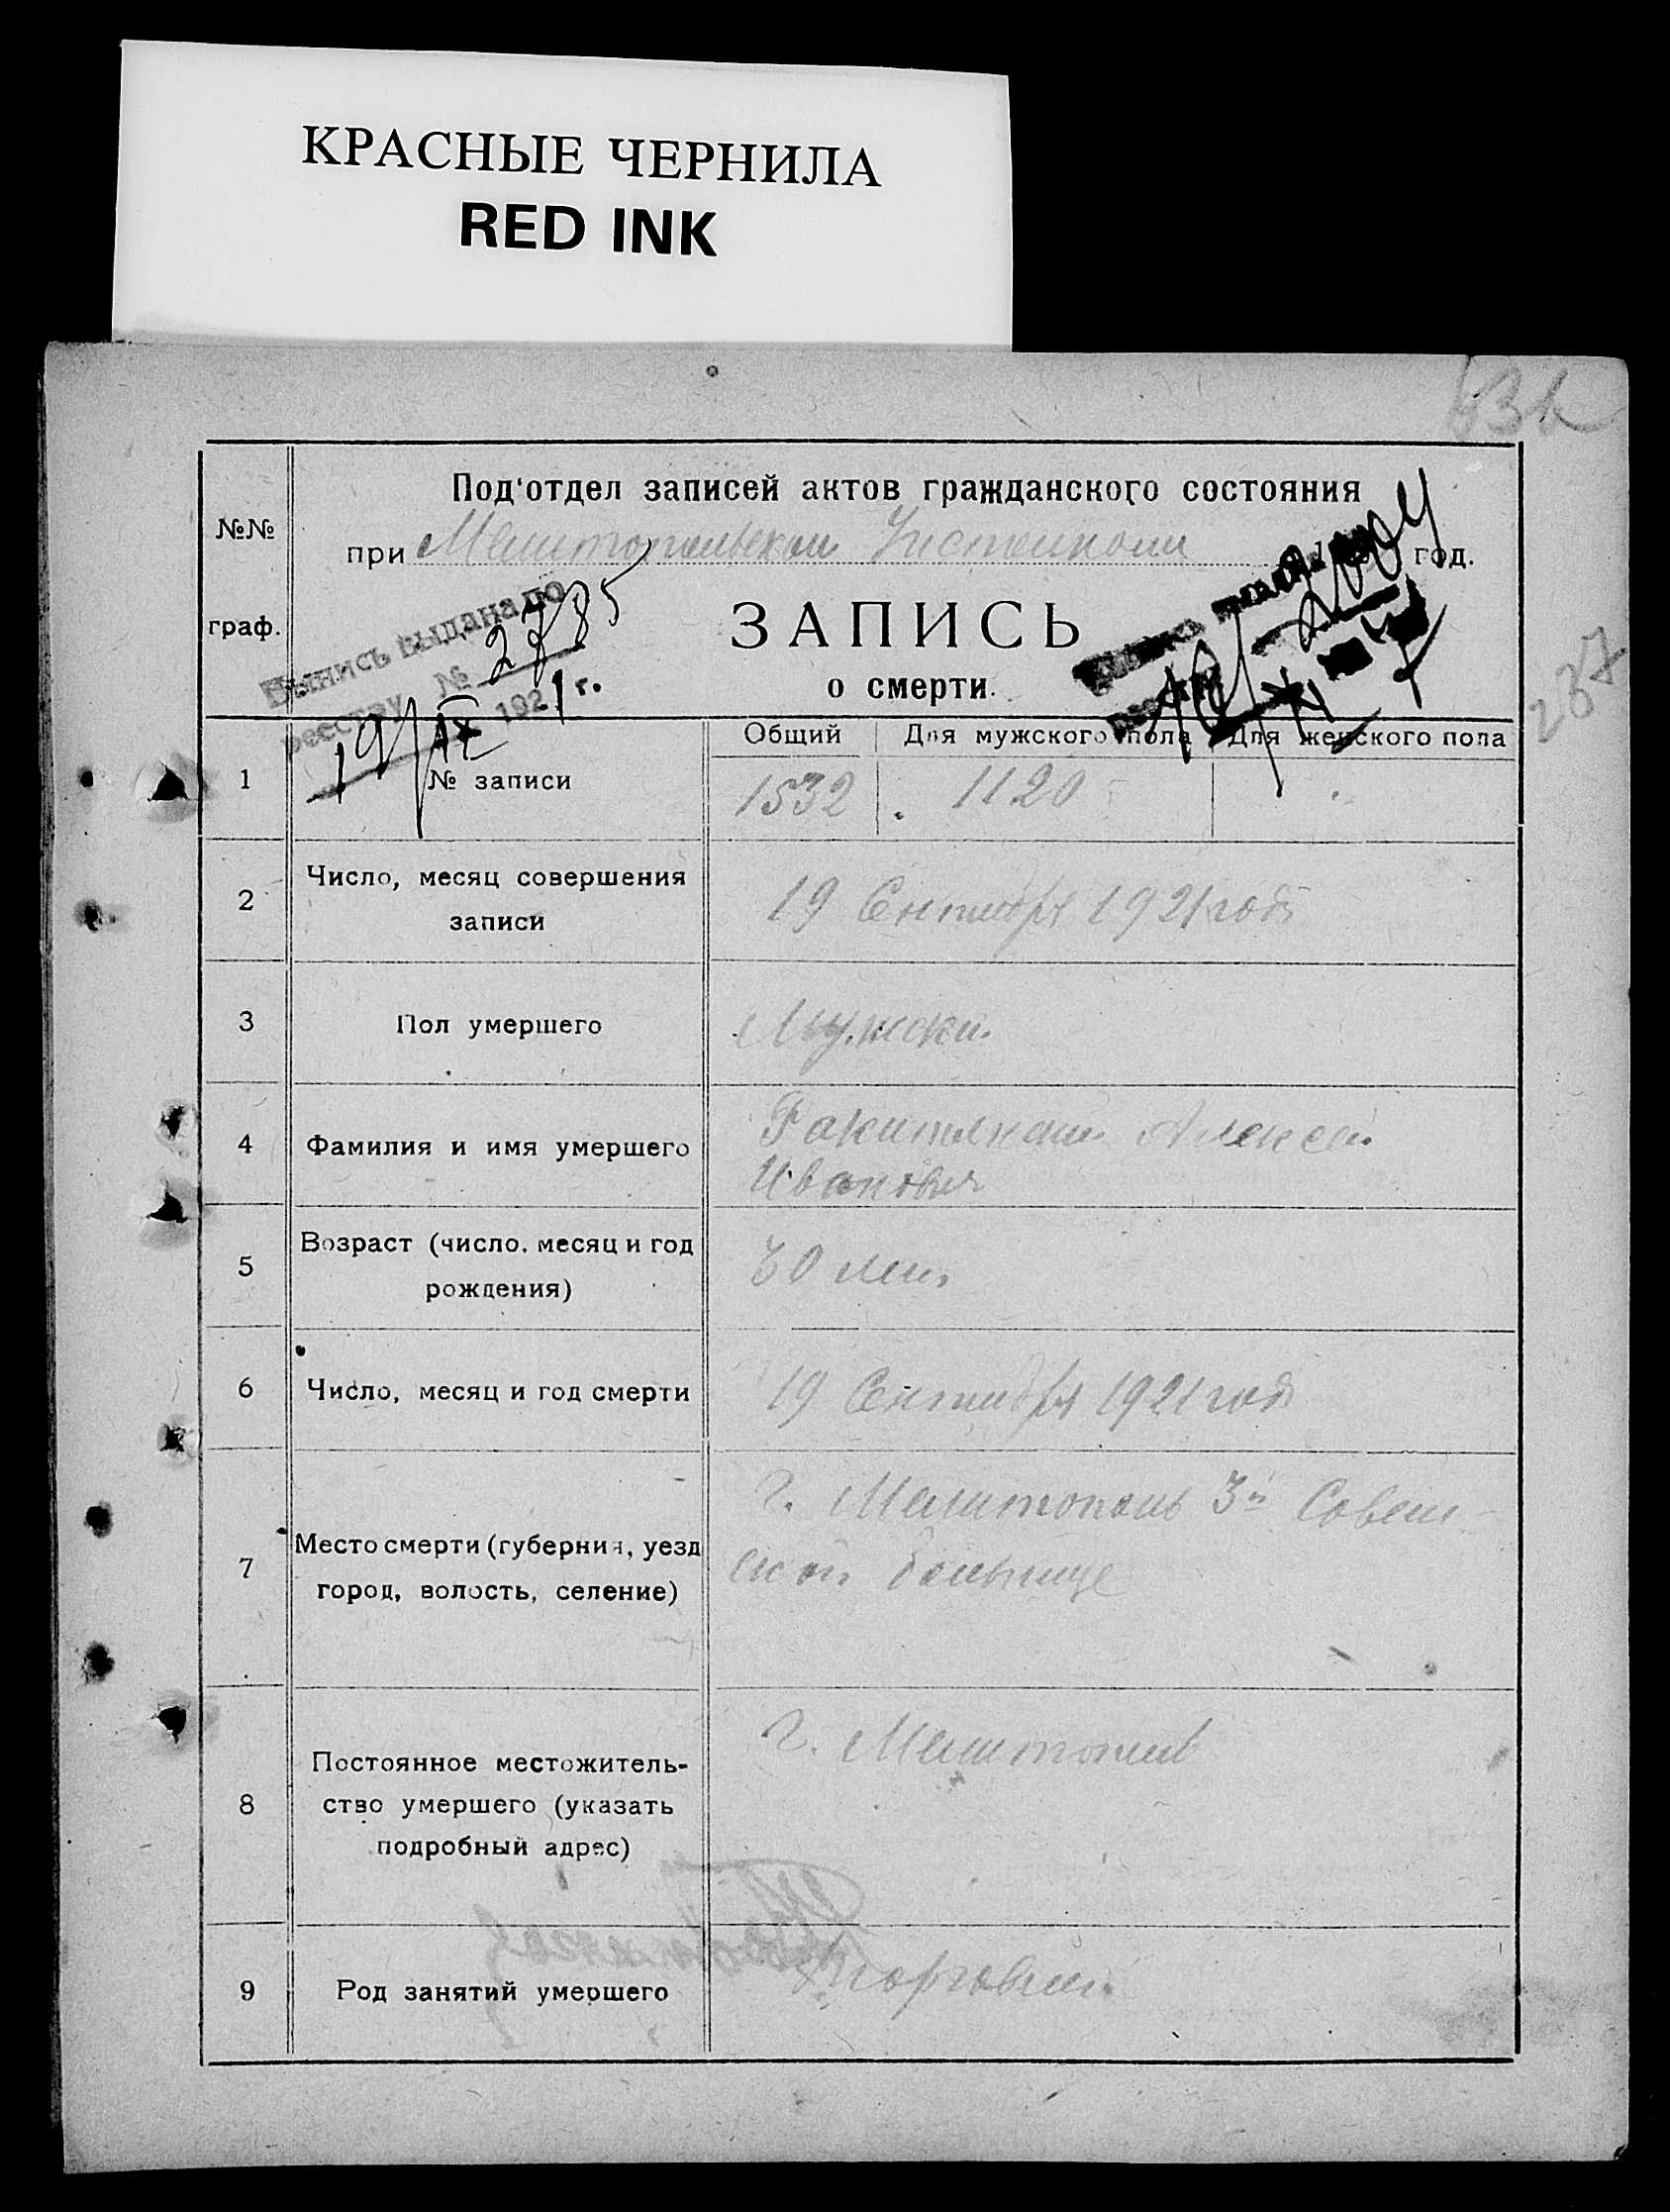 КРАСНЫЕ ЧЕРНИЛА
RED INK
№№ граф.
Под'отдел записей актов гражданского состояния
при Мелитопольском год.
Выпись выдана по
реестру № 2785
19/IX 1921 г.
ЗАПИСЬ
о смерти.
287
Общий Для мужского пола Для женского пола
1 № записи 1532 1120
2 Число, месяц совершения
записи
19 Сентября 1921 года
3 Пол умершего Мужской
4 Фамилия и имя умершего
Алексей
Иванович
5 Возраст (число, месяц и год
рождения)
30 лет
6 Число, месяц и год смерти 19 Сентября 1921 года
7 Место смерти (губерния, уезд
город, волость, селение)
г. Мелитополь 3й Совет
ской больнице
8 Постоянное местожитель-
ство умершего (указать
подробный адрес)
г. Мелитополь
9 Род занятий умершего